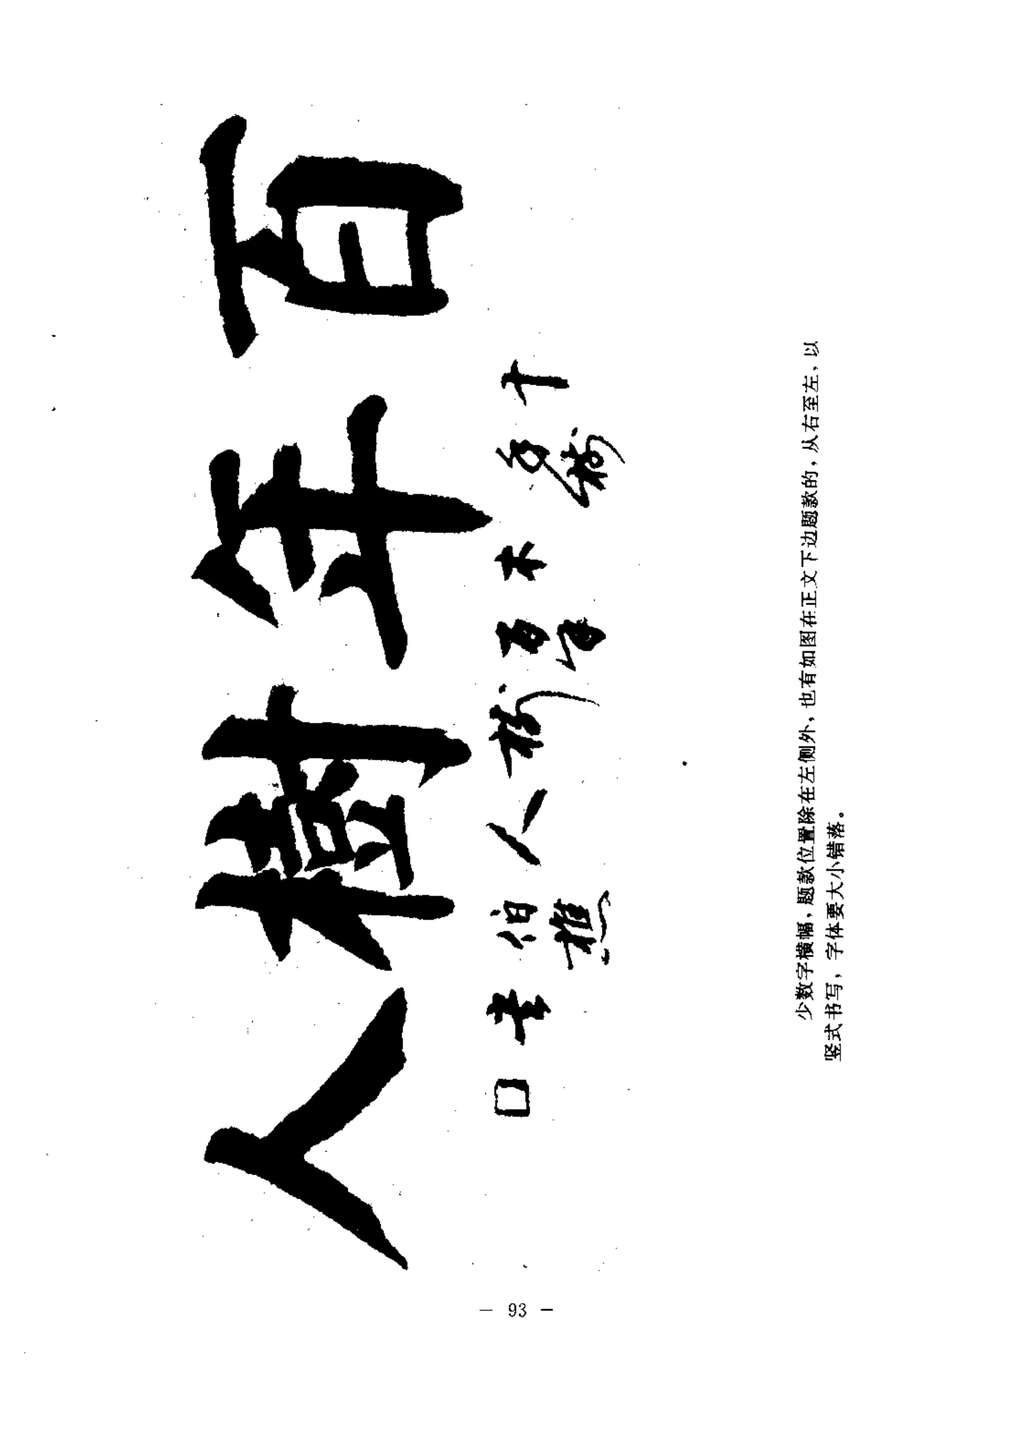 百年樹人
十
年樹
木
百年
樹
人
伯樵
書
少数字横幅，题款位置除在左侧外，也有如图在正文下边题款的，从右至左，以
竖式书写，字体要大小错落。
— 93 —